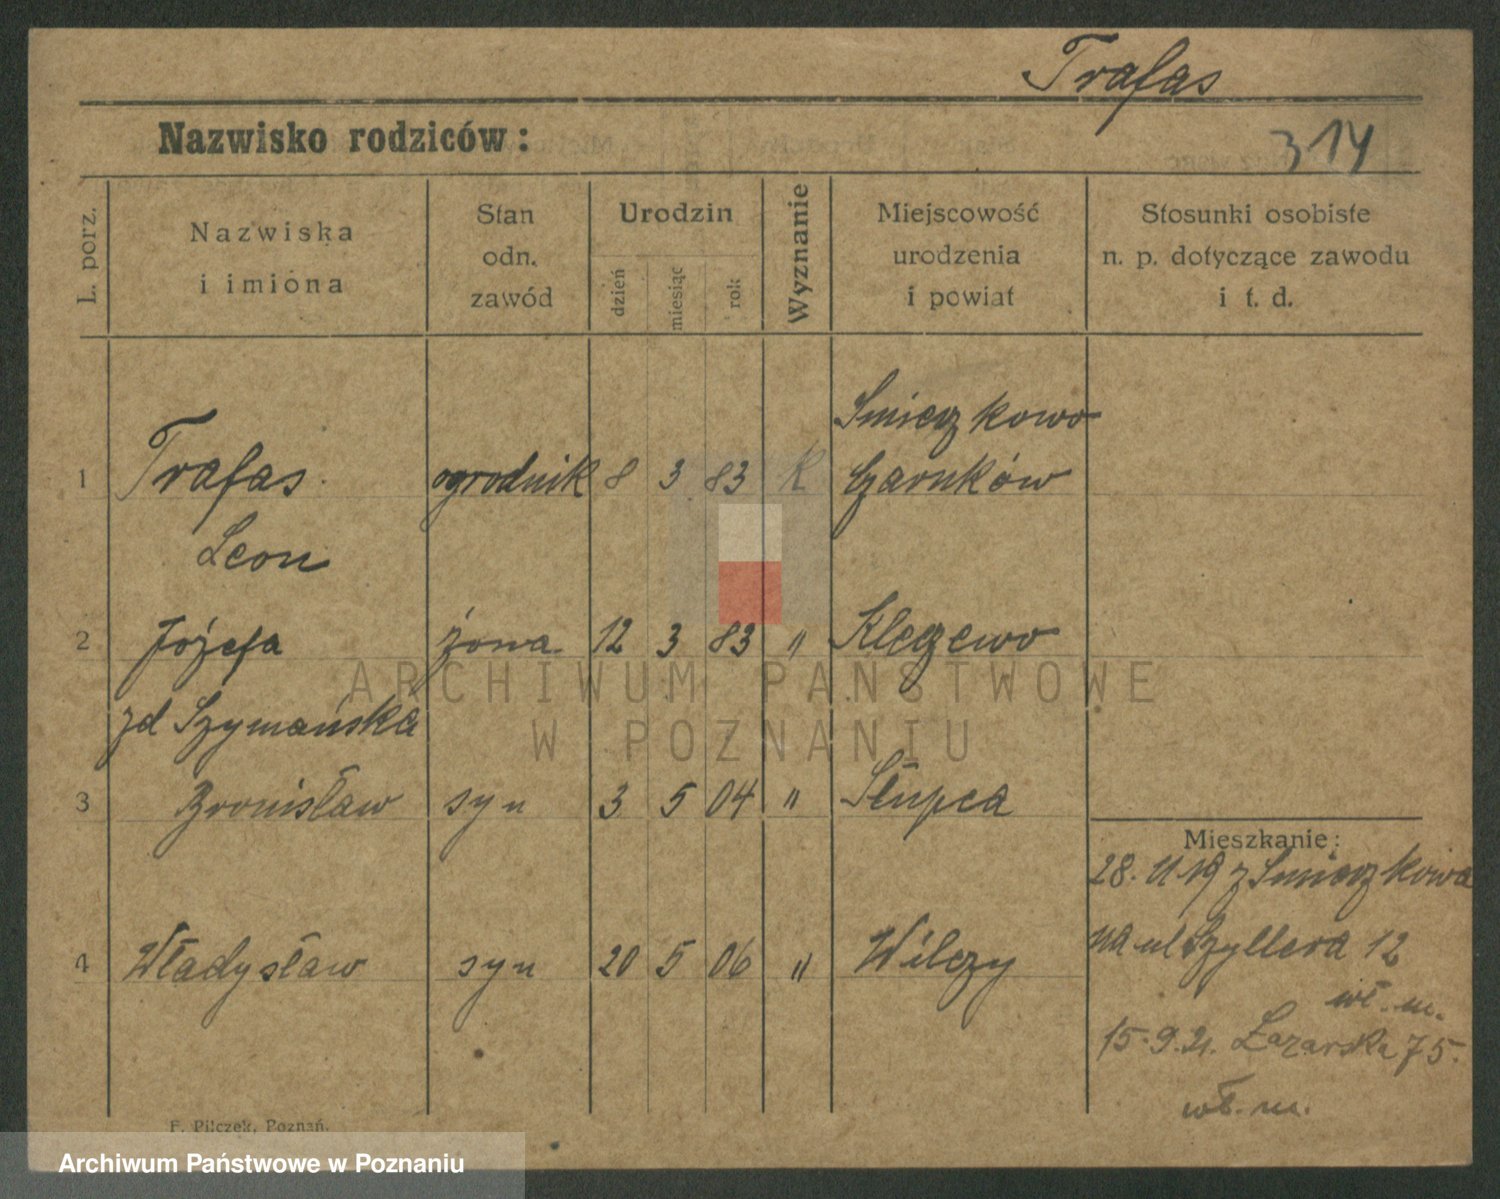 Trafas
Nazwisko rodziców:
314
L. porz.
Nazwiska
i imiona
Stan
odn.
zawód
Urodzin
dzień
miesiąc
rok
Wyznanie
Miejscowość
urodzenia
i powiat
Stosunki osobiste
n. p. dotyczące zawodu
i t. d.
Smieszkowo
1 Trafas ogrodnik 8 3 83 K Czarnków
Leon
2 Józefa żona 12 3 83 " Kleczewo
zd Szymańska
3 Bronisław syn 3 5 04 " Słupca
Mieszkanie:
28. 11 19 z Smieszkowa
na ul Szyllera 12
4 Władysław syn 20 5 06 " Wilczy
wł. m.
15.9.21. Łazarska 75.
wł. m.
F. Pilczek, Poznań.
ARCHIWUM PAŃSTWOWE
W POZNANIU
Archiwum Państwowe w Poznaniu